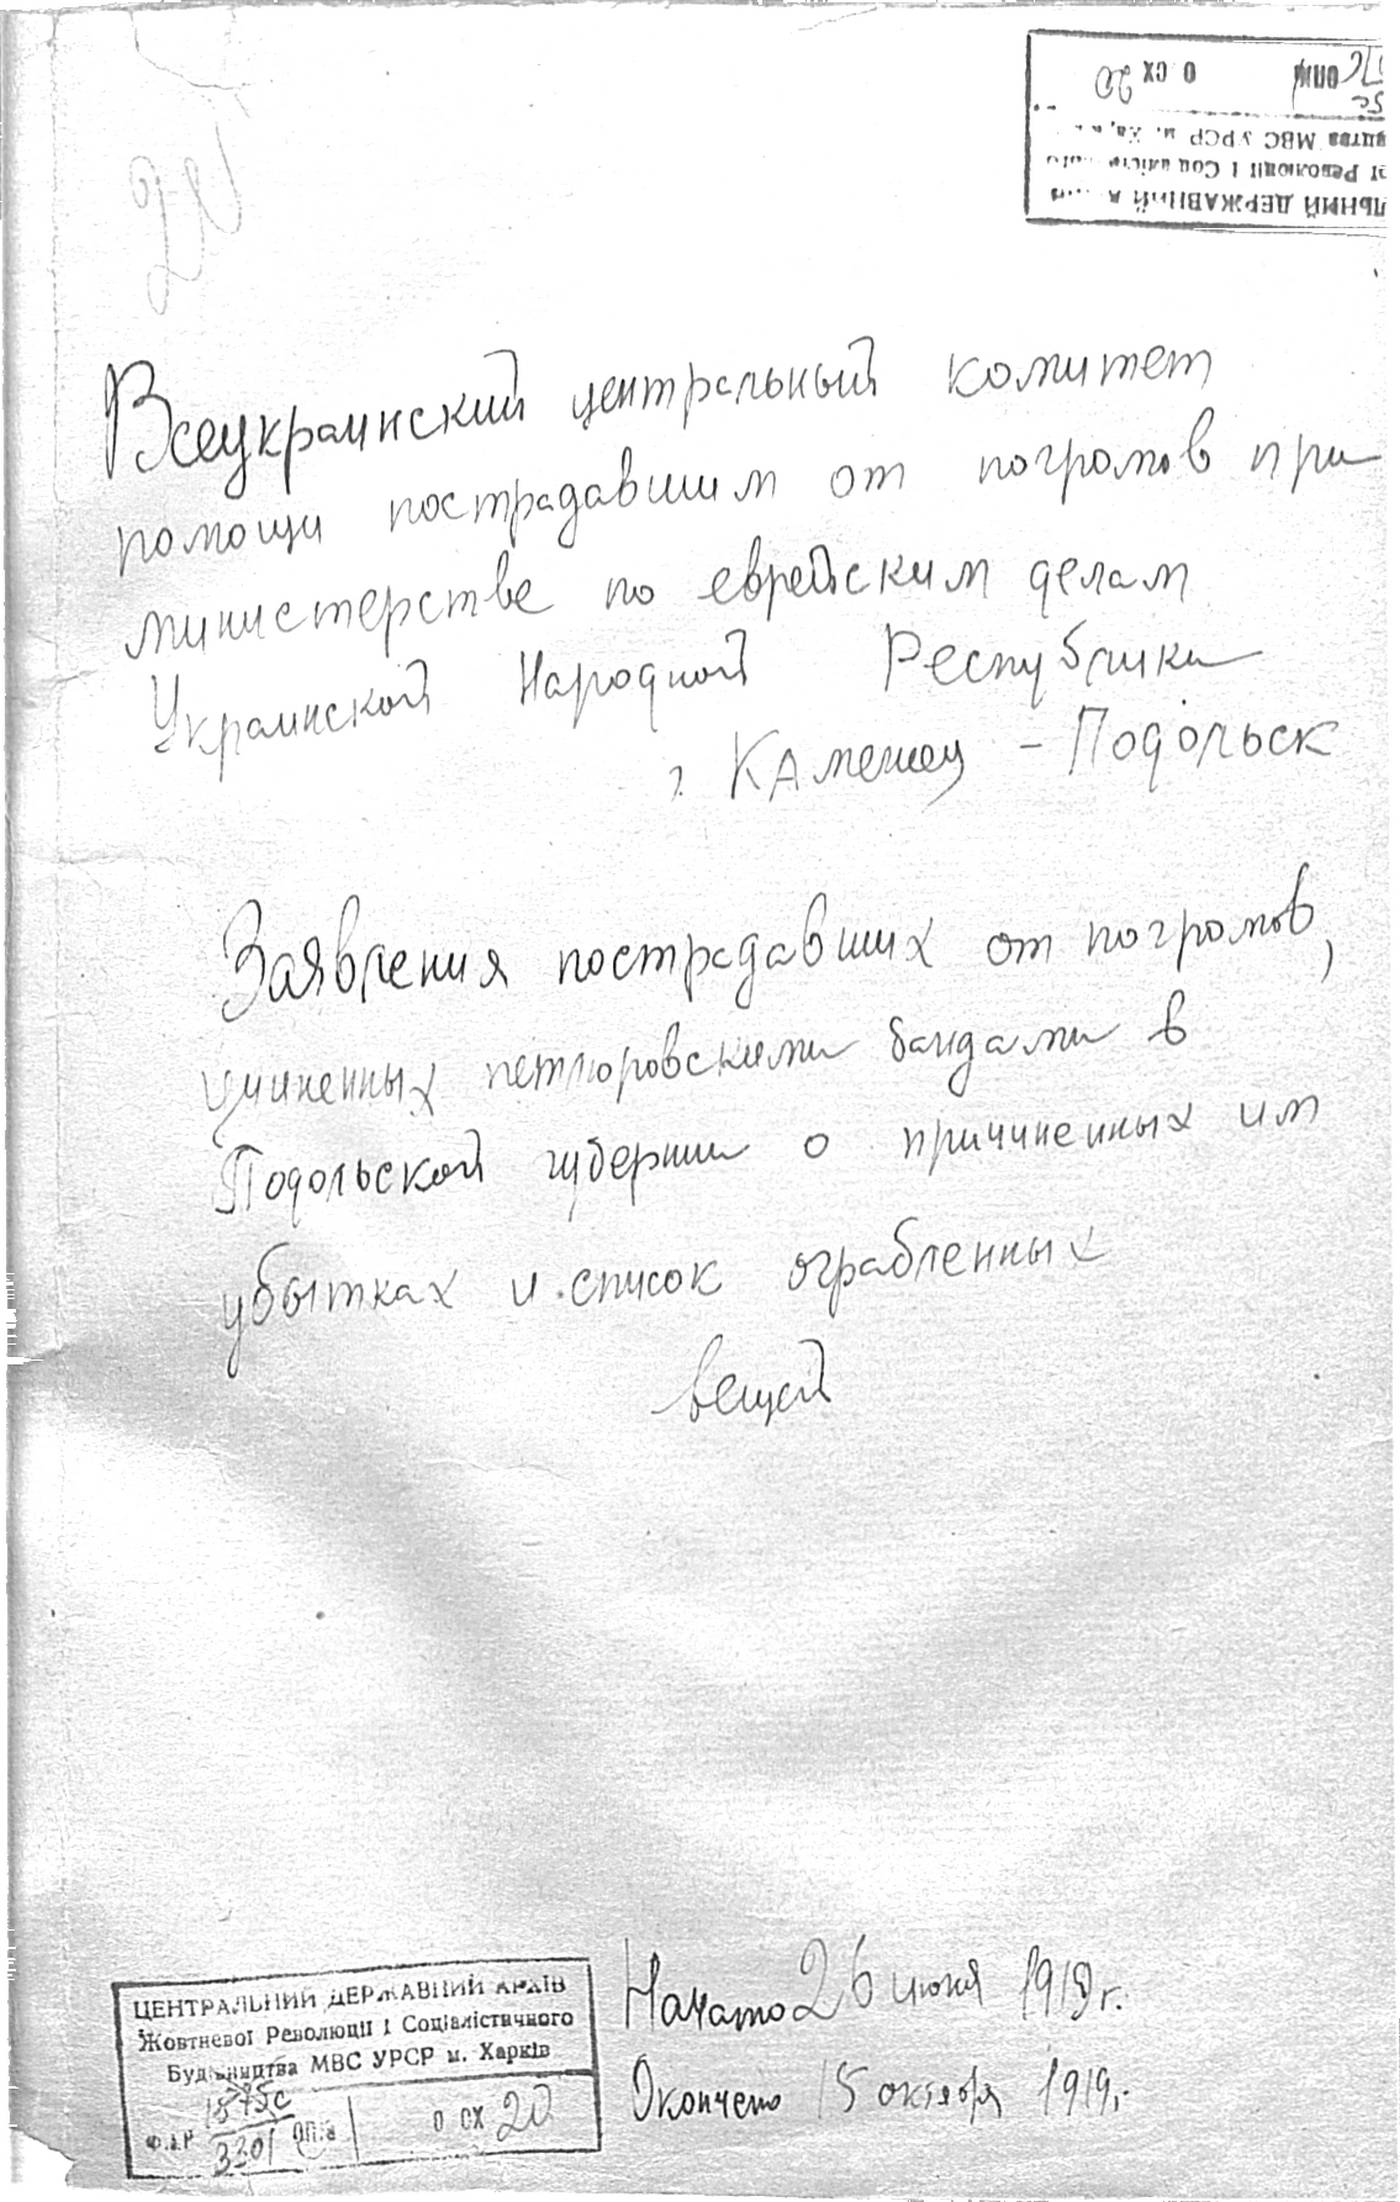 20
О СХ 20
ЛЬНИЙ ДЕРЖАВНИЙ
Революції і
МВС УРСР м.
Всеукраинский центральный комитет
помощи пострадавшим от погромов при
министерстве по еврейским делам
Украинской Народной Республики
г. Каменец - Подольск
Заявления пострадавших от погромов,
учиненных петлюровскими бандами в
Подольской губернии о причиненных им
убытках и список ограбленных
вещей
Начато 26 июня 1919 г.
Окончено 15 октября 1919 г.
ЦЕНТРАЛЬНИЙ ДЕРЖАВНИЙ АРХІВ
Жовтневої Революції і Соціалістичного
Будівництва МВС УРСР м. Харків
1575с
3301
О СХ 20